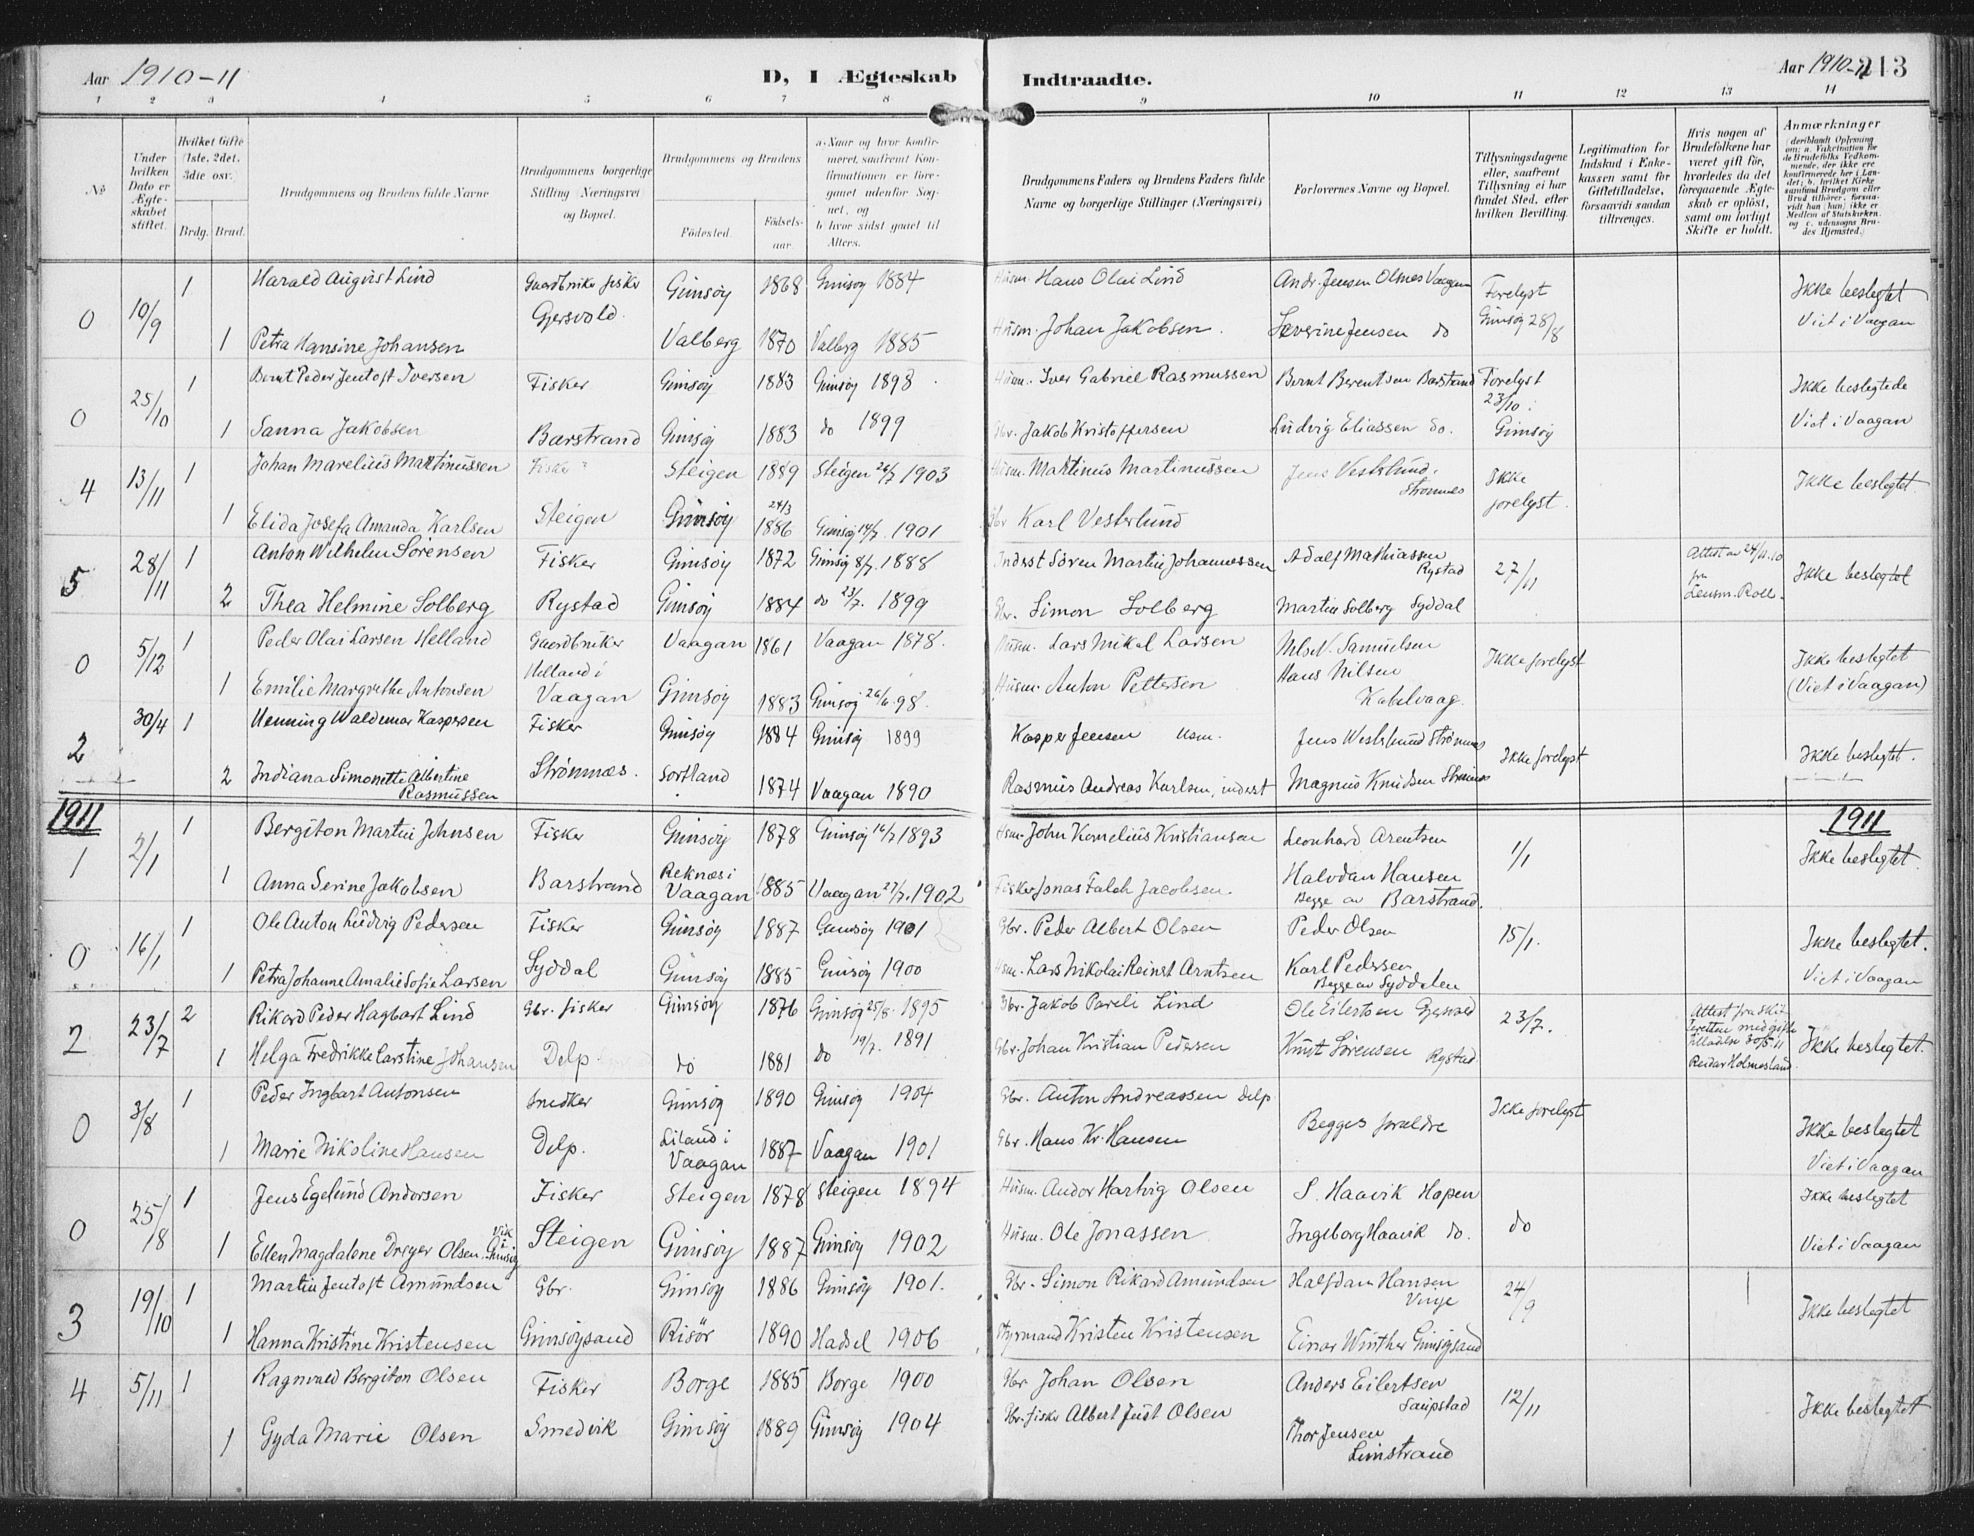 Aar 1910-11
D, I Ægteskab
Indtraadte.
Aar 1910-11
213
1 2 3 4 5 6 7 8 9 10 11 12 13 14
No
Under hvilken Dato er Ægteskabet stiftet.
Hvilket Gifte (1ste, 2det, 3die osv.
Brdg. Brud.
Brudgommens og Brudens fulde Navne
Brudgommens borgerlige Stilling (Næringsvei og Bopæl.
Brudgommens og Brudens
Fødested.
Fødselsaar.
a. Naar og hvor konfirmeret, saafremt Konfirmationen er foregaaet udenfor Sognet, og
b. hvor sidst gaaet til Alters.
Brudgommens Faders og Brudens Faders fulde Navne og borgerlige Stillinger (Næringsvei)
Forlovernes Navne og Bopæl.
Tillysningsdagene eller, saafremt Tillysning ei har fundet Sted, efter hvilken Bevilling.
Legitimation for Indskud i Enkekassen samt for Giftetilladelse, forsaavidt saadan tiltrænges.
Hvis nogen af Brudefolkene har været gift før, hvorledes da det foregaaende Ægteskab er opløst, samt om lovligt Skifte er holdt.
Anmærkninger (deriblandt Oplysning om: a. Vakcination for de Brudefolks Vedkommende, der ikke ere konfirmerede her i Landet; b. hvilket Kirkesamfund Brudgom eller Brud tilhører, forsaavidt han (hun) ikke er Medlem af Statskirken, og c. udensogns Brudes Hjemsted.)
0 10/9 1 Harald August Lind Gaardbruker fisker Gjersvold. Gimsøy 1868 Gimsøy 1884 Husm. Hans Olai Lind Andr. Jensen Olsnes Vaagan Forelyst Gimsøy 28/8 Ikke beslegtet
1 Petra Hansine Johansen Valberg 1870 Valberg 1885 Husm. Johan Jakobsen. Severine Jensen do Viet i Vaagan
0 25/10 1 Bernt Peder Jentoft Iversen Fisker Gimsøy 1883 Gimsøy 1898 Husm. Iver Gabriel Rasmussen Bernt Berentsen Barstrand Forelyst 23/10 i Gimsøy Ikke beslegtede
1 Sanna Jakobsen Barstrand Gimsøy 1883 do 1899 Gbr. Jakob Kristoffersen Ludvig Eliassen do. Viet i Vaagan
4 13/11 1 Johan Marelius Martinussen Fisker Steigen 1889 Steigen 26/7 1903 Husm. Martinus Martinussen Jens Vesterlund. Strømnes Ikke forelyst. Ikke beslegtet.
1 Elida Josefa Amanda Karlsen Steigen Gimsøy 24/3 1886 Gimsøy 14/7. 1901 Gbr Karl Vesterlund
5 28/11 1 Anton Wilhelm Sørensen Fisker Gimsøy 1872 Gimsøy 8/7. 1888 Inderst Søren Martin Johannessen Adolf Mathiassen Rystad 27/11 Attest av 24/11.10 fra Lensm. Roll. Ikke beslegtet
2 Thea Helmine Solberg Rystad Gimsøy 1884 do 23/7. 1899 Gbr. Simon Solberg Martin Solberg Syddal
0 5/12 1 Peder Olai Larsen Helland Gaardbruker Helland i Vaagan Vaagan 1861 Vaagan 1878. Husm. Lars Mikal Larsen Nils N. Samuelsen Ikke forelyst Ikke beslegtet
1 Emilie Margrethe Antonsen Gimsøy 1883 Gimsøy 26/6. 98. Husm. Anton Pettersen Hans Nilsen Kabelvaag. (Viet i Vaagan)
2 30/4 1 Henning Waldemar Kaspersen Fisker Gimsøy 1884 Gimsøy 1899 Kasper Jensen Husm. Jens Westerlund Strømnes Ikke forelyst Ikke beslegtet.
2 Indiana Simonette Albertine Rasmussen Strømnæs. Sortland 1874 Vaagan 1890 Rasmus Andreas Karlsen, inderst Magnus Knudsen Strømnes
1911 1911
1 2/1 1 Bergiton Martin Johnsen Fisker Gimsøy 1878 Gimsøy 16/7 1893 Hsm. John Kornelius Kristiansen Leonhard Arentsen 1/1 Ikke beslegtet.
1 Anna Serine Jakobsen Barstrand Reknæs i Vaagan 1885 Vaagan 27/7. 1902 Fisker Jonas Falch Jacobsen. Halvdan Hansen Begge av Barstrand.
0 16/1 1 Ole Anton Ludvig Pedersen Fisker Gimsøy 1887 Gimsøy 1901 Gbr. Peder Albert Olsen Peder Olsen 15/1. Ikke beslegtet.
1 Petra Johanne Amalie Sofie Larsen Syddal Gimsøy 1885 Gimsøy 1900 Hsm. Lars Nikolai Reinst Arntsen Karl Pedersen Begge av Syddalen Viet i Vaagan
2 23/7 2 Rikard Peder Hagbart Lind Gbr. fisker Gimsøy 1876 Gimsøy 25/8. 1895 Gbr. Jakob Pareli Lind Ole Eilertsen Gjersvold 23/7. Attest fra skifteretten med gifte tilladelse 30/5 11 Reidar Holmesland. Ikke beslegtet.
1 Helga Fredrikke Carstine Johansen Delp. do 1881 do 19/7. 1891 Gbr. Johan Kristian Pedersen Knut Sørensen Rystad
0 3/8 1 Peder Ingbart Antonsen Snedker Gimsøy 1890 Gimsøy 1904 Gbr. Anton Andreassen Delp Begges forældre Ikke forelyst Ikke beslegtet
1 Marie Nikoline Hansen Delp. Liland i Vaagan 1887 Vaagan 1901 Gbr. Hans Kr. Hansen Viet i Vaagan
0 25/8 1 Jens Egelund Andorsen Fisker Steigen 1878 Steigen 1894 Husm. Andor Hartvig Olsen S. Haavik Hopen do Ikke beslegtet
1 Ellen Magdalene Dreyer Olsen. Vik i Gimsøy Steigen Gimsøy 1887 Gimsøy 1902 Husm. Ole Jonassen. Ingeborg Haavik do. Viet i Vaagan
3 19/10 1 Martin Jentoft Amundsen Gbr. Gimsøy 1886 Gimsøy 1901. Gbr. Simon Rikard Amundsen Halfdan Hansen Vinje 24/9 Ikke beslegtet
1 Hanna Kristine Kristensen Gimsøysand Risør 1890 Hadsel 1906 Styrmand Kristen Kristensen Einar Winther Gimsøysand
4 5/11 1 Ragnvald Bergiton Olsen Fisker Borge 1885 Borge 1900 Gbr Johan Olsen Anders Eilertsen Saupstad 12/11 Ikke beslegtet
1 Gyda Marie Olsen Smedvik Gimsøy 1889 Gimsøy 1904 Gbr. fisker Albert Just Olsen Thor Jensen Limstrand